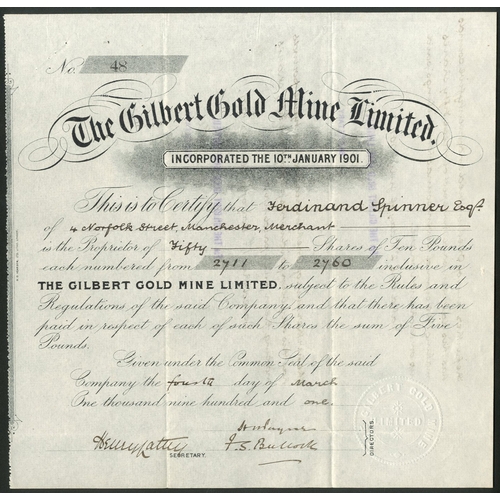 No. 48
The Gilbert Gold Mine Limited.
INCORPORATED THE 10TH JANUARY 1901.
This is to Certify that Ferdinand Spinner Esqr.
of 4 Norfolk Street, Manchester, Merchant
is the Proprietor of Fifty Shares of Ten Pounds
each numbered from 2711 to 2760 inclusive in
THE GILBERT GOLD MINE LIMITED, subject to the Rules and
Regulations of the said Company, and that there has been
paid in respect of each of such Shares the sum of Five
Pounds.
Given under the Common Seal of the said
Company the fourth day of March
One thousand nine hundred and one.
SECRETARY.
J. S. Bullock
DIRECTORS.
GILBERT GOLD MINE
LIMITED